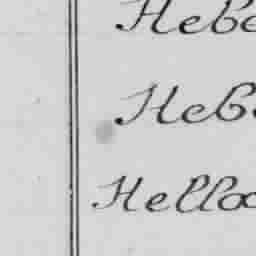 Hebe
Heb
Hello